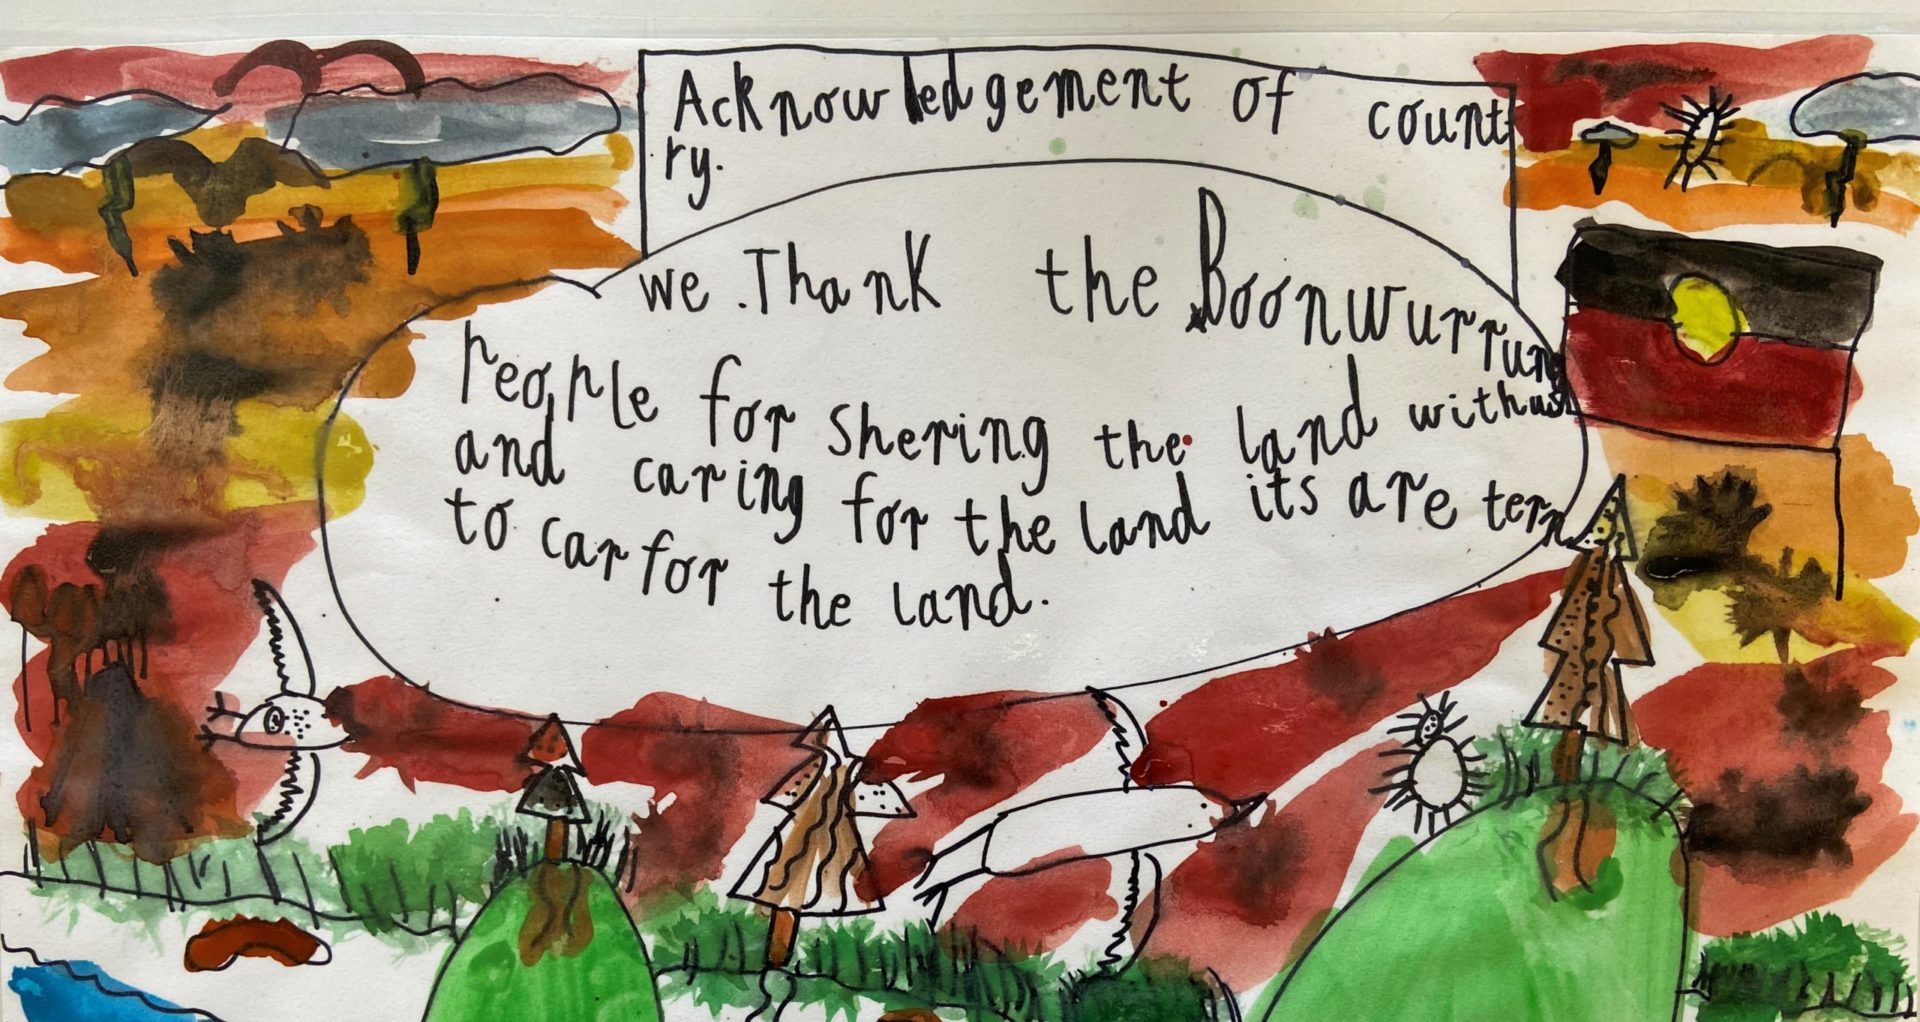 Acknowledgement of count
ry.
we Thank the Boonwurrung
People for shering the land with us
and caring for the land its are tern
to car for the land.